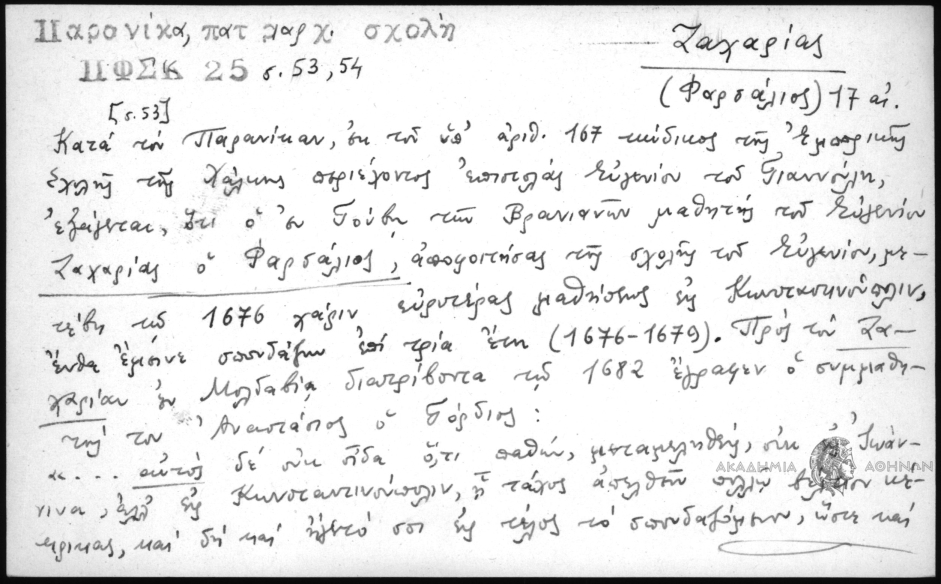 Παρανίκα, πατριαρχ. σχολή
ΠΦΣΚ 25 σ. 53, 54
Ζαχαρίας
(Φαρσάλιος) 17 αι.
[σ. 53]
Κατά τόν Παρανίκαν, ἐκ τοῦ ὑπ' ἀριθ. 167 κώδικος τῆς Ἐμπορικῆς
Σχολῆς τῆς Χάλκης περιέχοντος ἐπιστολάς Εὐγενίου τοῦ Γιαννούλη,
ἐξάγεται, ὅτι ὁ ἐν Γούβῃ τῶν Βρανιανῶν μαθητής τοῦ Εὐγενίου
Ζαχαρίας ὁ Φαρσάλιος, ἀποφοιτήσας τῆς σχολῆς τοῦ Εὐγενίου, με-
τέβη τῷ 1676 χάριν εὐρυτέρας μαθήσεως εἰς Κωνσταντινούπολιν,
ἔνθα ἔμεινε σπουδάζων ἐπί τρία ἔτη (1676-1679). Πρός τόν Ζα-
χαρίαν ἐν Μολδαβίᾳ διατρίβοντα τῷ 1682 ἔγραφεν ὁ συμμαθη-
τής του Ἀναστάσιος ὁ Γόρδιος:
«... αὐτός δέ οὐκ οἶδα ὅ,τι παθών, μεταμεληθείς, οὐκ εἰς Ἰωάν-
νινα, ἀλλ' εἰς Κωνσταντινούπολιν, ἧ τάχος ἀπελθών πολλῷ βέλτιον
κέκρικας, καί δή καί εἰς τέλος τό σπουδαζόμενον, ὥστε καί
ΑΚΑΔΗΜΙΑ ΑΘΗΝΩΝ